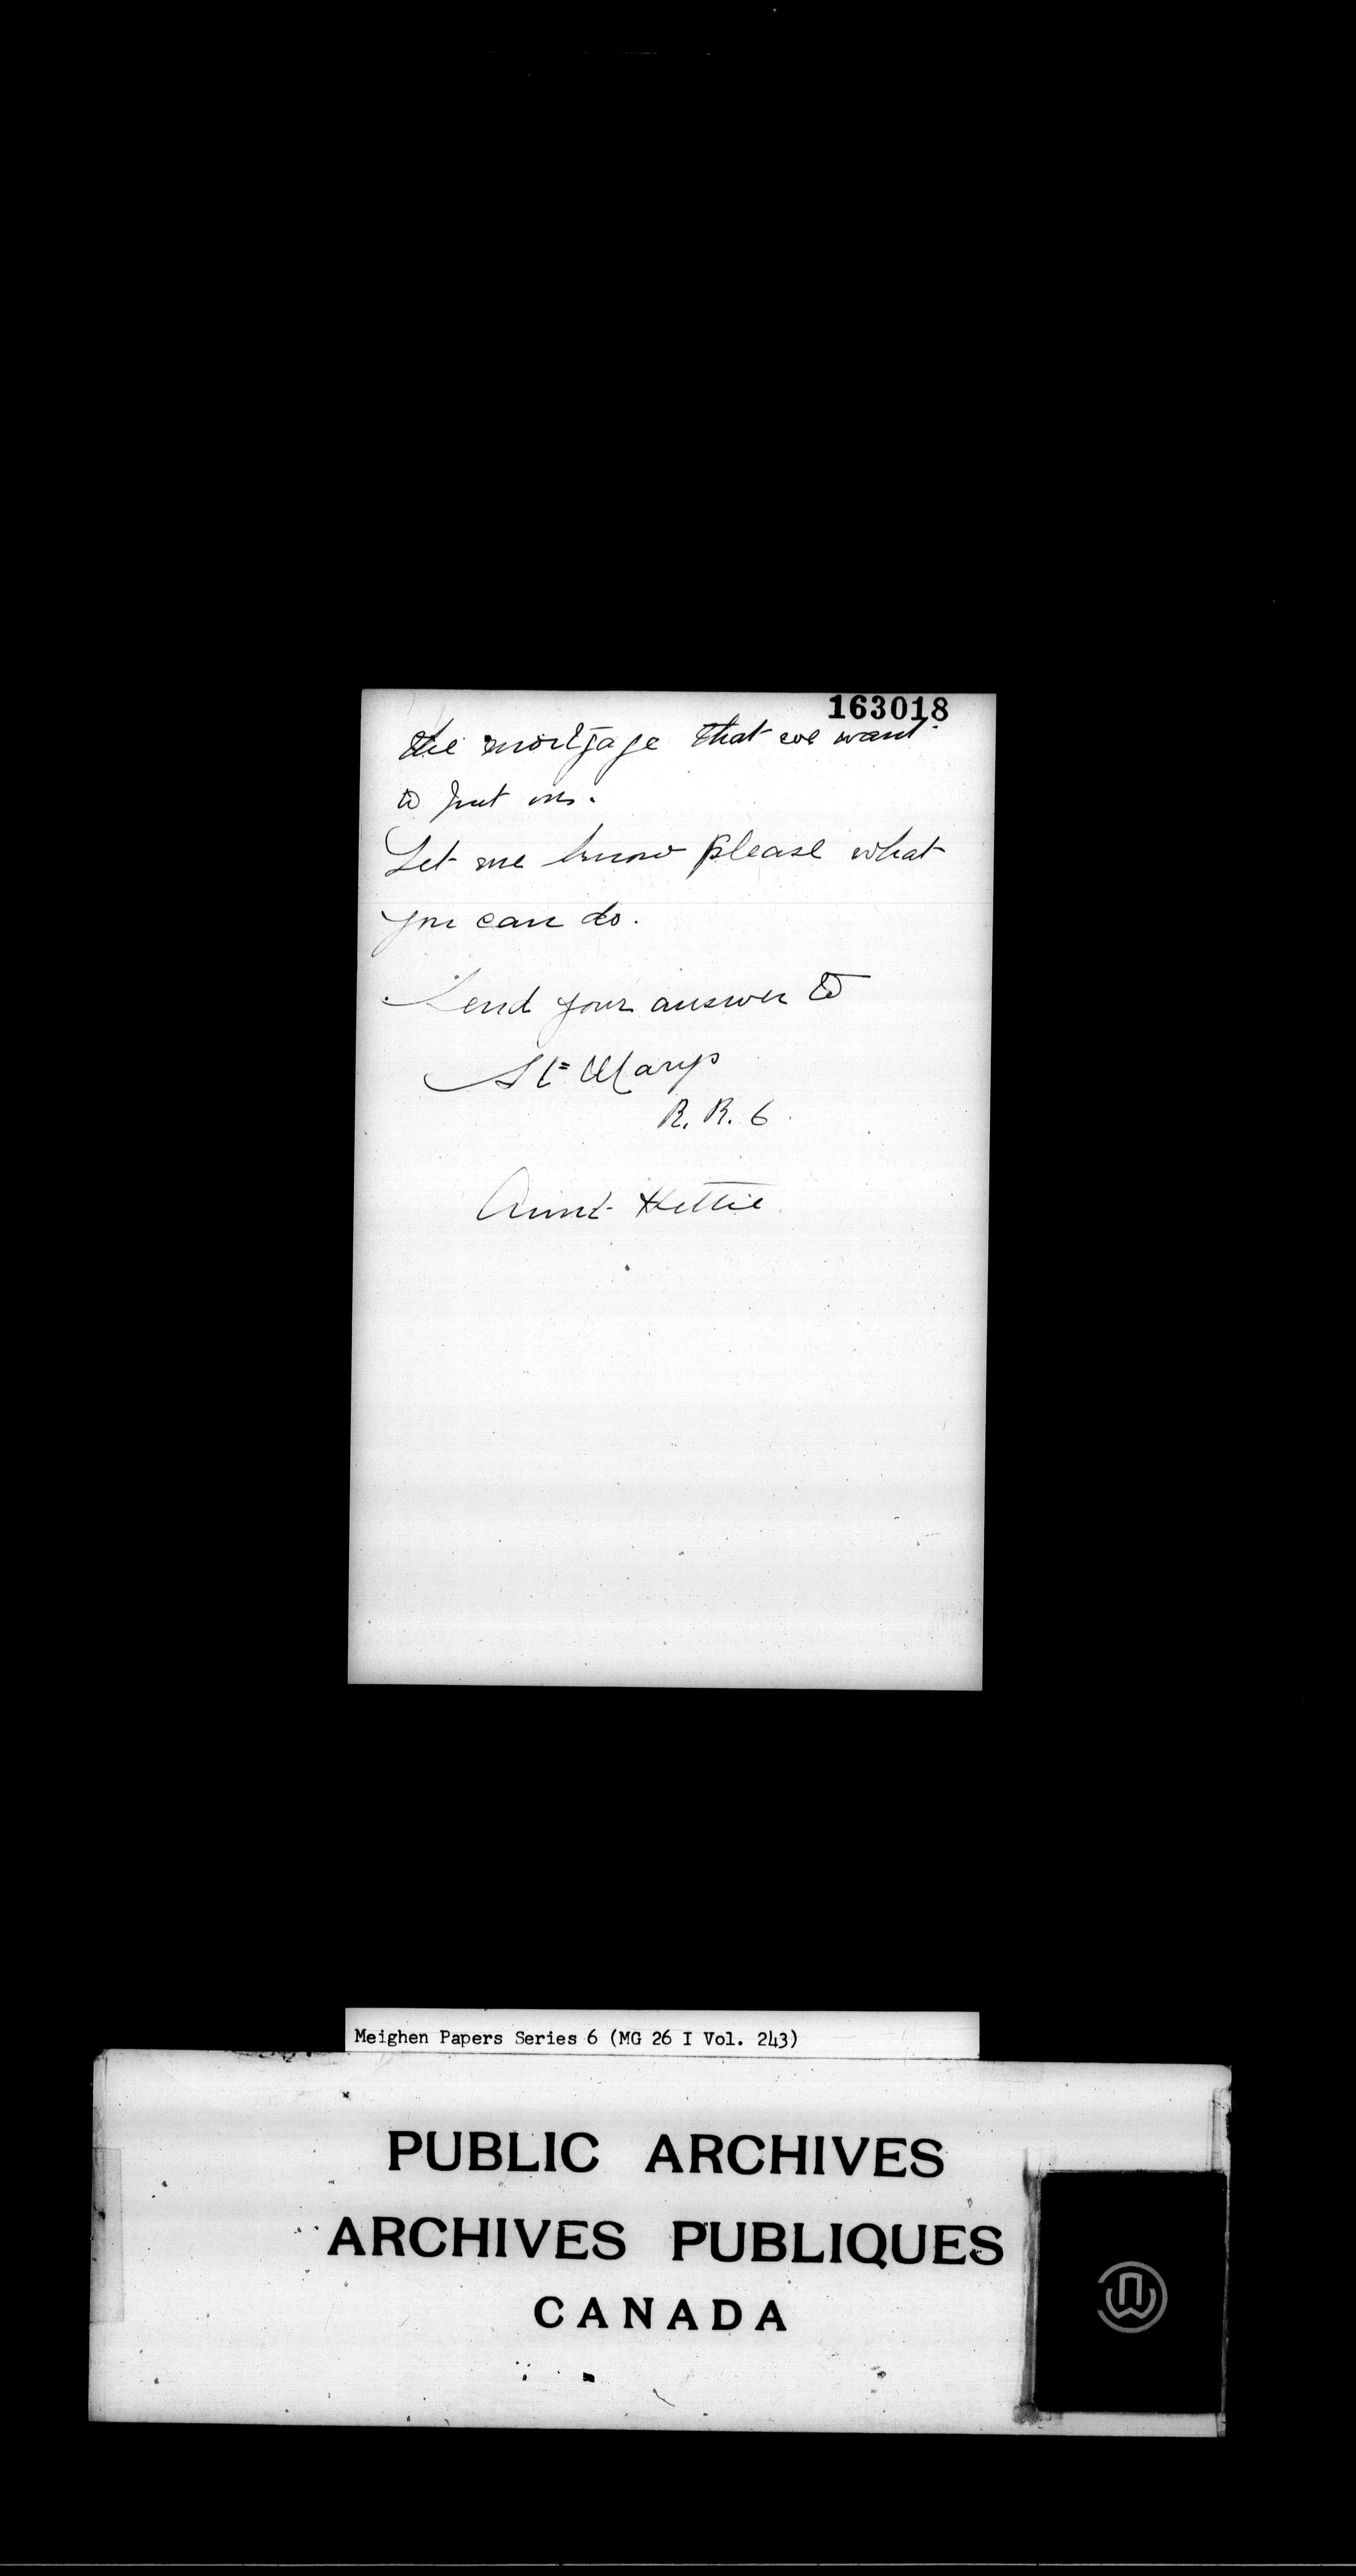 163018
the mortgage that we want
to put on.
Let me know please what
you can do.
Send your answer to
St= Marys
R. R. 6.
Aunt Hettie
Meighen Papers Series 6 (MG 26 I Vol. 243)
PUBLIC ARCHIVES
ARCHIVES PUBLIQUES
CANADA